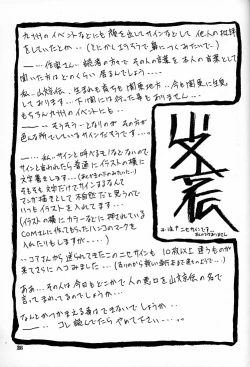 九州のイベントなどにも 顔を出してサインなどして 他人の批評
をしていたとか‥ (とにかくえらそうで鼻につくみたいで‥)
―‥‥ 作家さん‥ 読者の方々で その人の言葉を 本人の言葉として
聞いた方は どのくらい 居るんでしょう‥‥
私‥山文京伝‥ 生まれも育ちも 関東地方‥ 今も関東に生息
しております‥‥ 下関には行った事もありません‥‥
もちろん九州のイベントにも‥‥
―‥‥ そうそう‥となりのが その方が
色んな所でしている サインだそうです‥‥
―‥‥ 私‥サインと呼べるモノなどないので
サインと言われたら普通にイラストの横に
文字書きします‥‥
そもそも 文字だけでサインするなんて
マンガ描きとして 不自然だと思うので
いつもイラストを入れてます‥‥
(イラストの横に カラーなどに 押されている
COMICに作ってもらったハンコのマークを
入れたりもしますが‥‥)
‥コミケさんから送られてきたこのニセサインも 10枚以上 違うものが
来てさらにへコみました‥‥
ああ‥ その人は今もどこかで人の悪口を山文京伝の名で
言ってまわってるのでしょうか‥‥
なんとかつかまえる事はできないでしょうか‥‥
―‥‥ コレ読んでたら やめて下さい‥‥
山文京伝
※注↑ニセサインです。
86